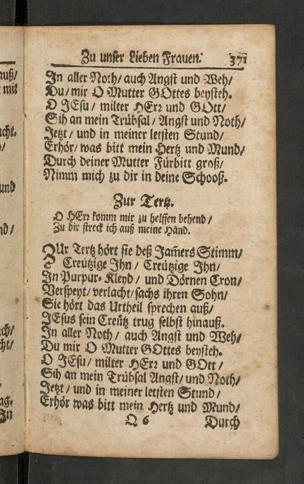 Zu unser Lieben Frauen. 371
In aller Noth/ auch Angst und Weh/
Du/ mir O Mutter GOttes beysteh.
O JEsu/ milter HErz und GOtt/
Sih an mein Trübsal/ Angst und Noth/
Jetzt/ und in meiner letsten Stund/
Erhör/ was bitt mein Hertz und Mund/
Durch deiner Mutter Fürbitt groß/
Nimm mich zu dir in deine Schooß.
Zur Tertz.
O HErz komm mir zu helffen behend/
Zu dir streck ich auß meine Händ.
ZUr Tertz hört sie deß Jam̄ers Stimm/
Creützige Ihn/ Creützige Ihn/
In Purpur-Kleyd/ und Dörnen Cron/
Verspeyt/ verlacht/ sachs ihren Sohn/
Sie hört das Urtheil sprechen auß/
JEsus sein Creütz trug selbst hinauß.
In aller Noth/ auch Angst und Weh/
Du mir O Mutter GOttes beysteh.
O JEsu/ milter HErz und GOtt/
Sih an mein Trübsal Angst/ und Noth/
Jetzt/ und in meiner letsten Stund/
Erhör was bitt mein Hertz und Mund/
Q 6 Durch